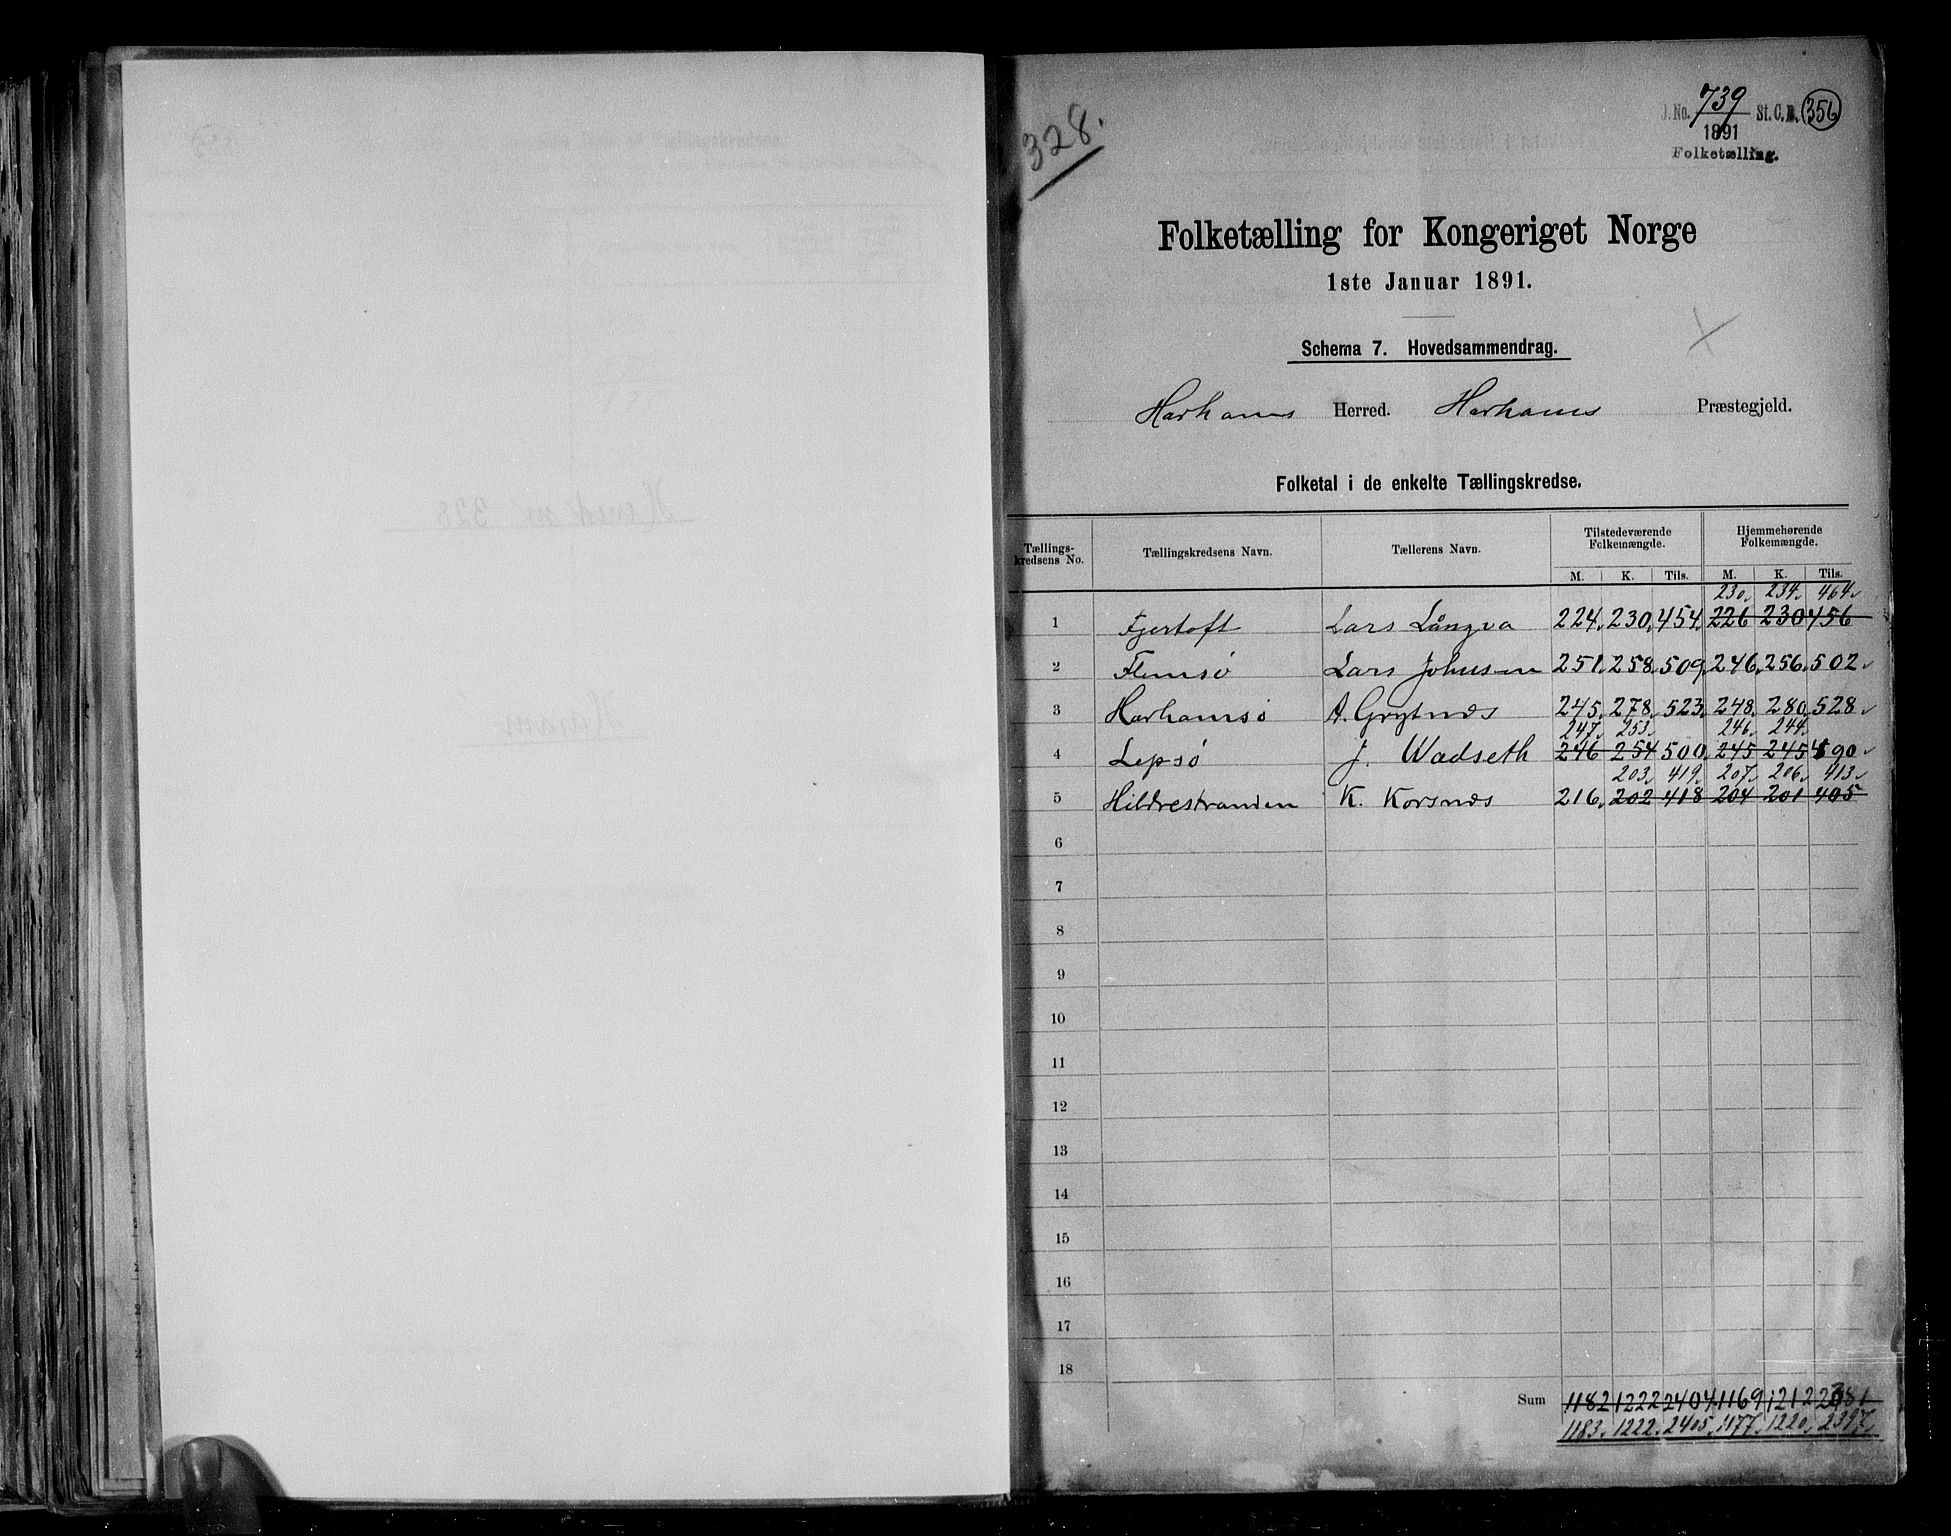 328.
J. No. 739 St. C. B. 356
1891
Folketælling.
Folketælling for Kongeriget Norge
1ste Januar 1891.
Schema 7. Hovedsammendrag.
Harhams Herred. Harhams Præstegjeld.
Folketal i de enkelte Tællingskredse.
Tællings-kredsens No. Tællingskredsens Navn. Tællerens Navn. Tilstedeværende Folkemængde. Hjemmehørende Folkemængde.
M. K. Tils. M. K. Tils.
230. 234. 464.
1 Fjertoft Lars Långva 224. 230. 454. 226 230 456
2 Flemsø Lars Johnsen 251. 258. 509. 246. 256. 502.
3 Harhamsø A. Grytnæs 245. 278. 523. 248. 280. 528.
247. 253. 246. 244.
4 Lepsø J. Wadseth 246 254 500. 245 245 490.
203. 419. 207. 206. 413.
5 Hildrestranden K. Korsnæs 216. 202 418 204 201 405
6
7
8
9
10
11
12
13
14
15
16
17
18
Sum 1182 1222 2404 1169 1212 2381
1183. 1222. 2405. 1177. 1220. 2397.